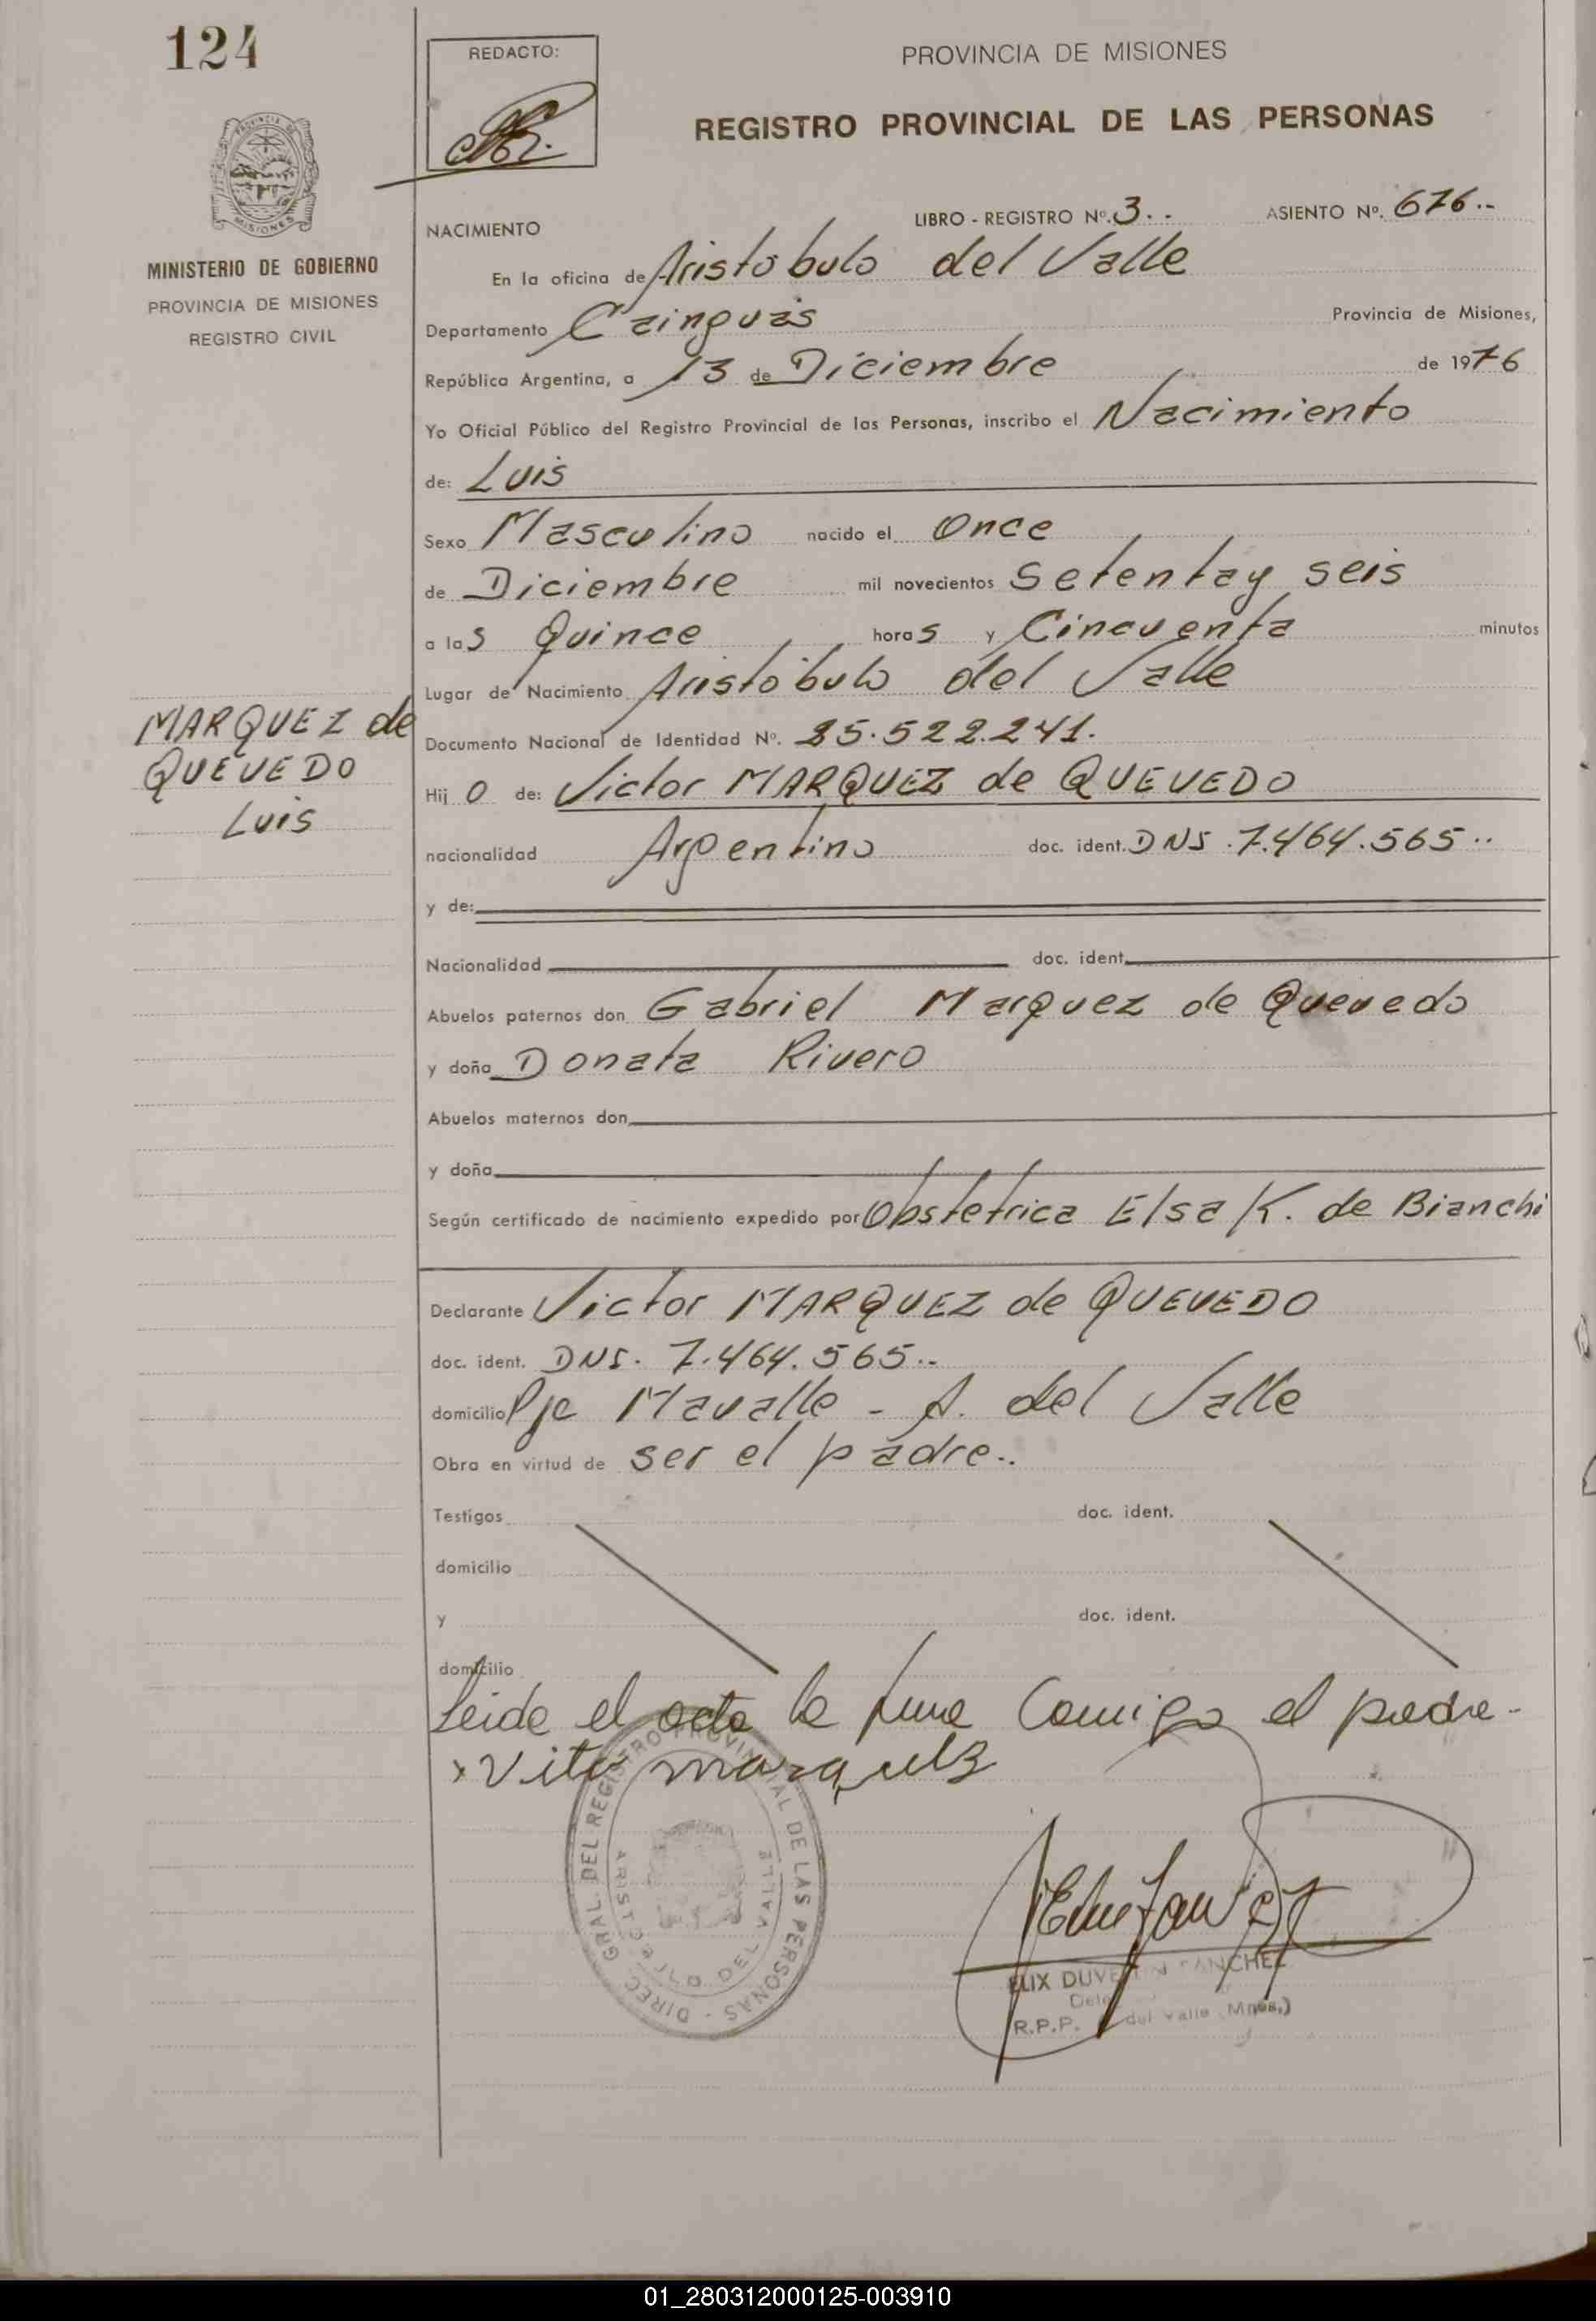 124
REDACTO:
PROVINCIA DE MISIONES
REGISTRO PROVINCIAL DE LAS PERSONAS
MINISTERIO DE GOBIERNO
PROVINCIA DE MISIONES
REGISTRO CIVIL
NACIMIENTO
LIBRO - REGISTRO Nº. 3.. ASIENTO Nº. 676..
En la oficina de Aristóbulo del Valle
Departamento Cainguás Provincia de Misiones,
República Argentina, a 13 de Diciembre de 1976
Yo Oficial Público del Registro Provincial de las Personas, inscribo el Nacimiento
de: Luis
Sexo Masculino nacido el Once
de Diciembre mil novecientos Setentay seis
a las Quince horas y Cincuenta minutos
Lugar de Nacimiento Aristóbulo del Valle
MARQUEZ de
QUEVEDO
Luis
Documento Nacional de Identidad Nº. 25.522.241.
Hijo de: Victor MARQUEZ de QUEVEDO
nacionalidad Argentino doc. ident. DNI. 7.464.565..
y de:
Nacionalidad doc. ident.
Abuelos paternos don Gabriel Marquez de Quevedo
y doña Donata Rivero
Abuelos maternos don
y doña
Según certificado de nacimiento expedido por Obstetrica Elsa K. de Bianchi
Declarante Victor MARQUEZ de QUEVEDO
doc. ident. DNI. 7.464.565..
domicilio Pje Mavalle - A. del Valle
Obra en virtud de ser el padre..
Testigos doc. ident.
domicilio
y doc. ident.
domicilio
Leida el acta la firma Conmigo el padre-
x Vito marquez
DIREC. GRAL. DEL REGISTRO PROVINCIAL DE LAS PERSONAS -
ARISTOBULO DEL VALLE
ELIX DUVE SANCHEZ
R.P.P. del Valle (Mnes.)
01_280312000125-003910